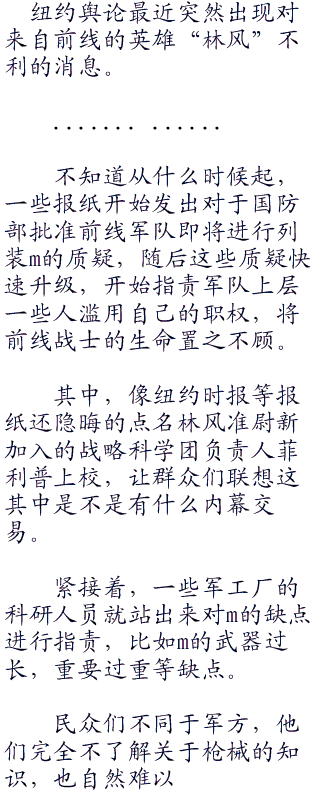 纽约舆论最近突然出现对
来自前线的英雄“林风”不
利的消息。
....... ......
不知道从什么时候起，
一些报纸开始发出对于国防
部批准前线军队即将进行列
装m的质疑，随后这些质疑快
速升级，开始指责军队上层
一些人滥用自己的职权，将
前线战士的生命置之不顾。
其中，像纽约时报等报
纸还隐晦的点名林风准尉新
加入的战略科学团负责人菲
利普上校，让群众们联想这
其中是不是有什么内幕交
易。
紧接着，一些军工厂的
科研人员就站出来对m的缺点
进行指责，比如m的武器过
长，重要过重等缺点。
民众们不同于军方，他
们完全不了解关于枪械的知
识，也自然难以